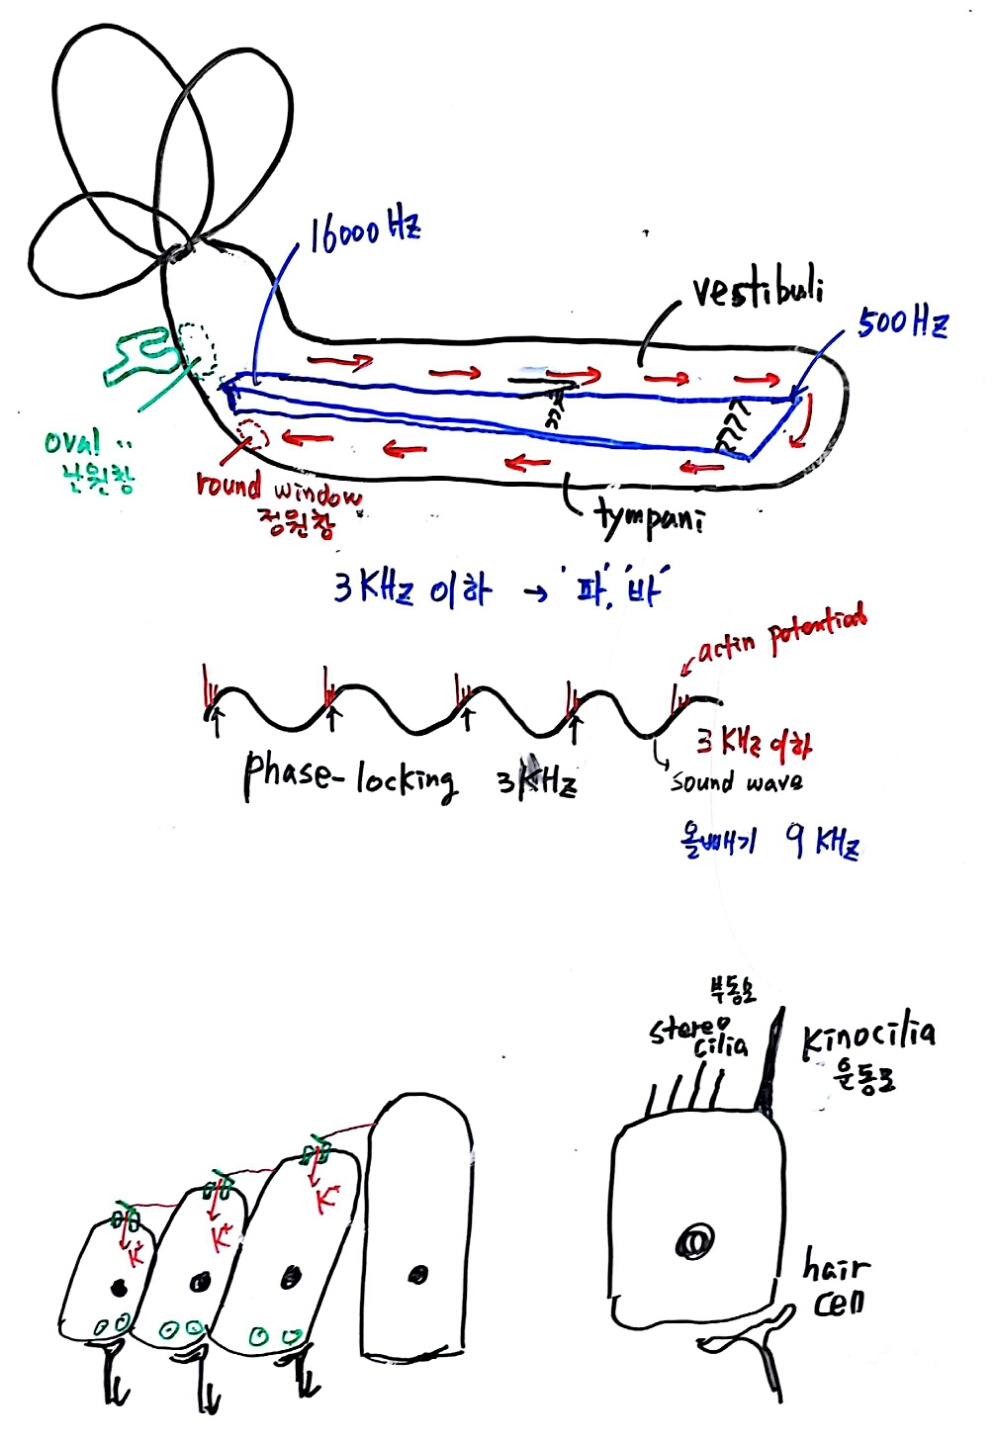 16000 Hz
vestibuli
500 Hz
oval
난원창
round window
정원창
tympani
3 KHz 이하 → '파', '바'
actin potential
phase-locking 3KHz
3 KHz 이하
sound wave
올빼미 9 KHz
부동모
stereo
cilia
Kinocilia
운동모
K⁺
K⁺
K⁺
hair
cell